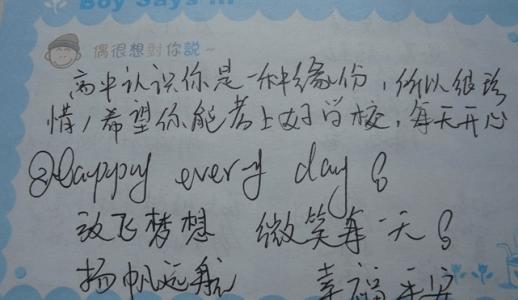 Boy Says in
偶很想對你說~
高中认识你是一种缘份,所以很珍
惜,希望你能考上好学校,每天开心
Happy every day
放飞梦想 微笑每一天
扬帆远航 幸福平安